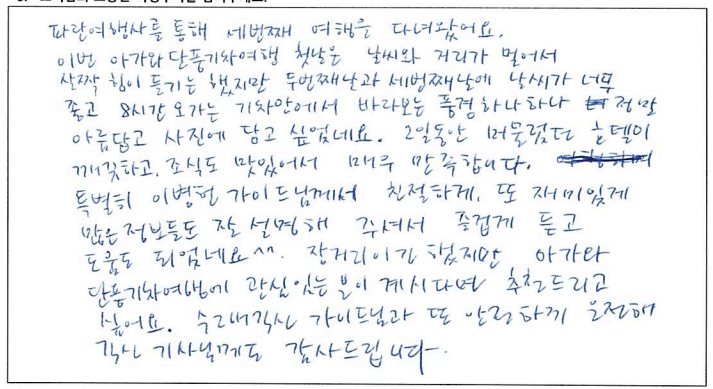 파란여행사를 통해 세번째 여행을 다녀왔어요.
이번 아가와단풍기차여행 첫날은 날씨와 거리가 멀어서
살짝 힘이 들기는 했지만 두번째날과 세번째날에 날씨가 너무
좋고 8시간 오가는 기차안에서 바라보는 풍경하나하나 정말
아름답고 사진에 담고 싶었네요. 2일동안 머물렀던 호텔이
깨끗하고, 조식도 맛있어서 매우 만족합니다.
특별히 이병헌 가이드님께서 친절하게, 또 재미있게
많은 정보들도 잘 설명해 주셔서 즐겁게 듣고
도움도 되었네요^^. 장거리이긴 했지만 아가와
단풍기차여행에 관심있는 분이 계시다면 추천드리고
싶어요. 수고해주신 가이드님과 또 안전하게 운전해
주신 기사님께도 감사드립니다.